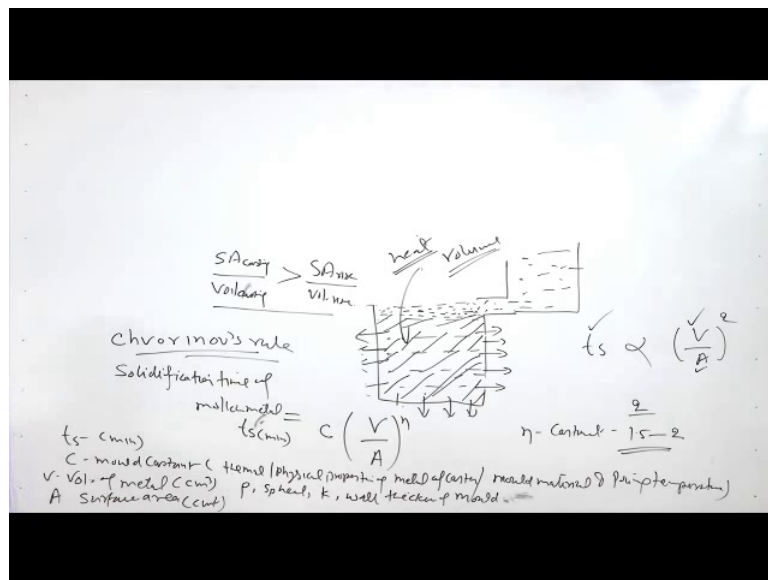 heat volume
SAcasting / Vol casting > SA rise / Vol. rise
Chvorinov's rule
ts ∝ (V/A)^2
Solidification time of
molten metal =
ts (min) C (V/A)^n
n - Constant - 2 / 1.5 - 2
ts - (min)
C - mould Constant ( thermal/physical properties of metal of / mould material & temperature)
V - Vol. of metal (cm³) ρ, k, wall thickness of mould.
A Surface area (cm²)